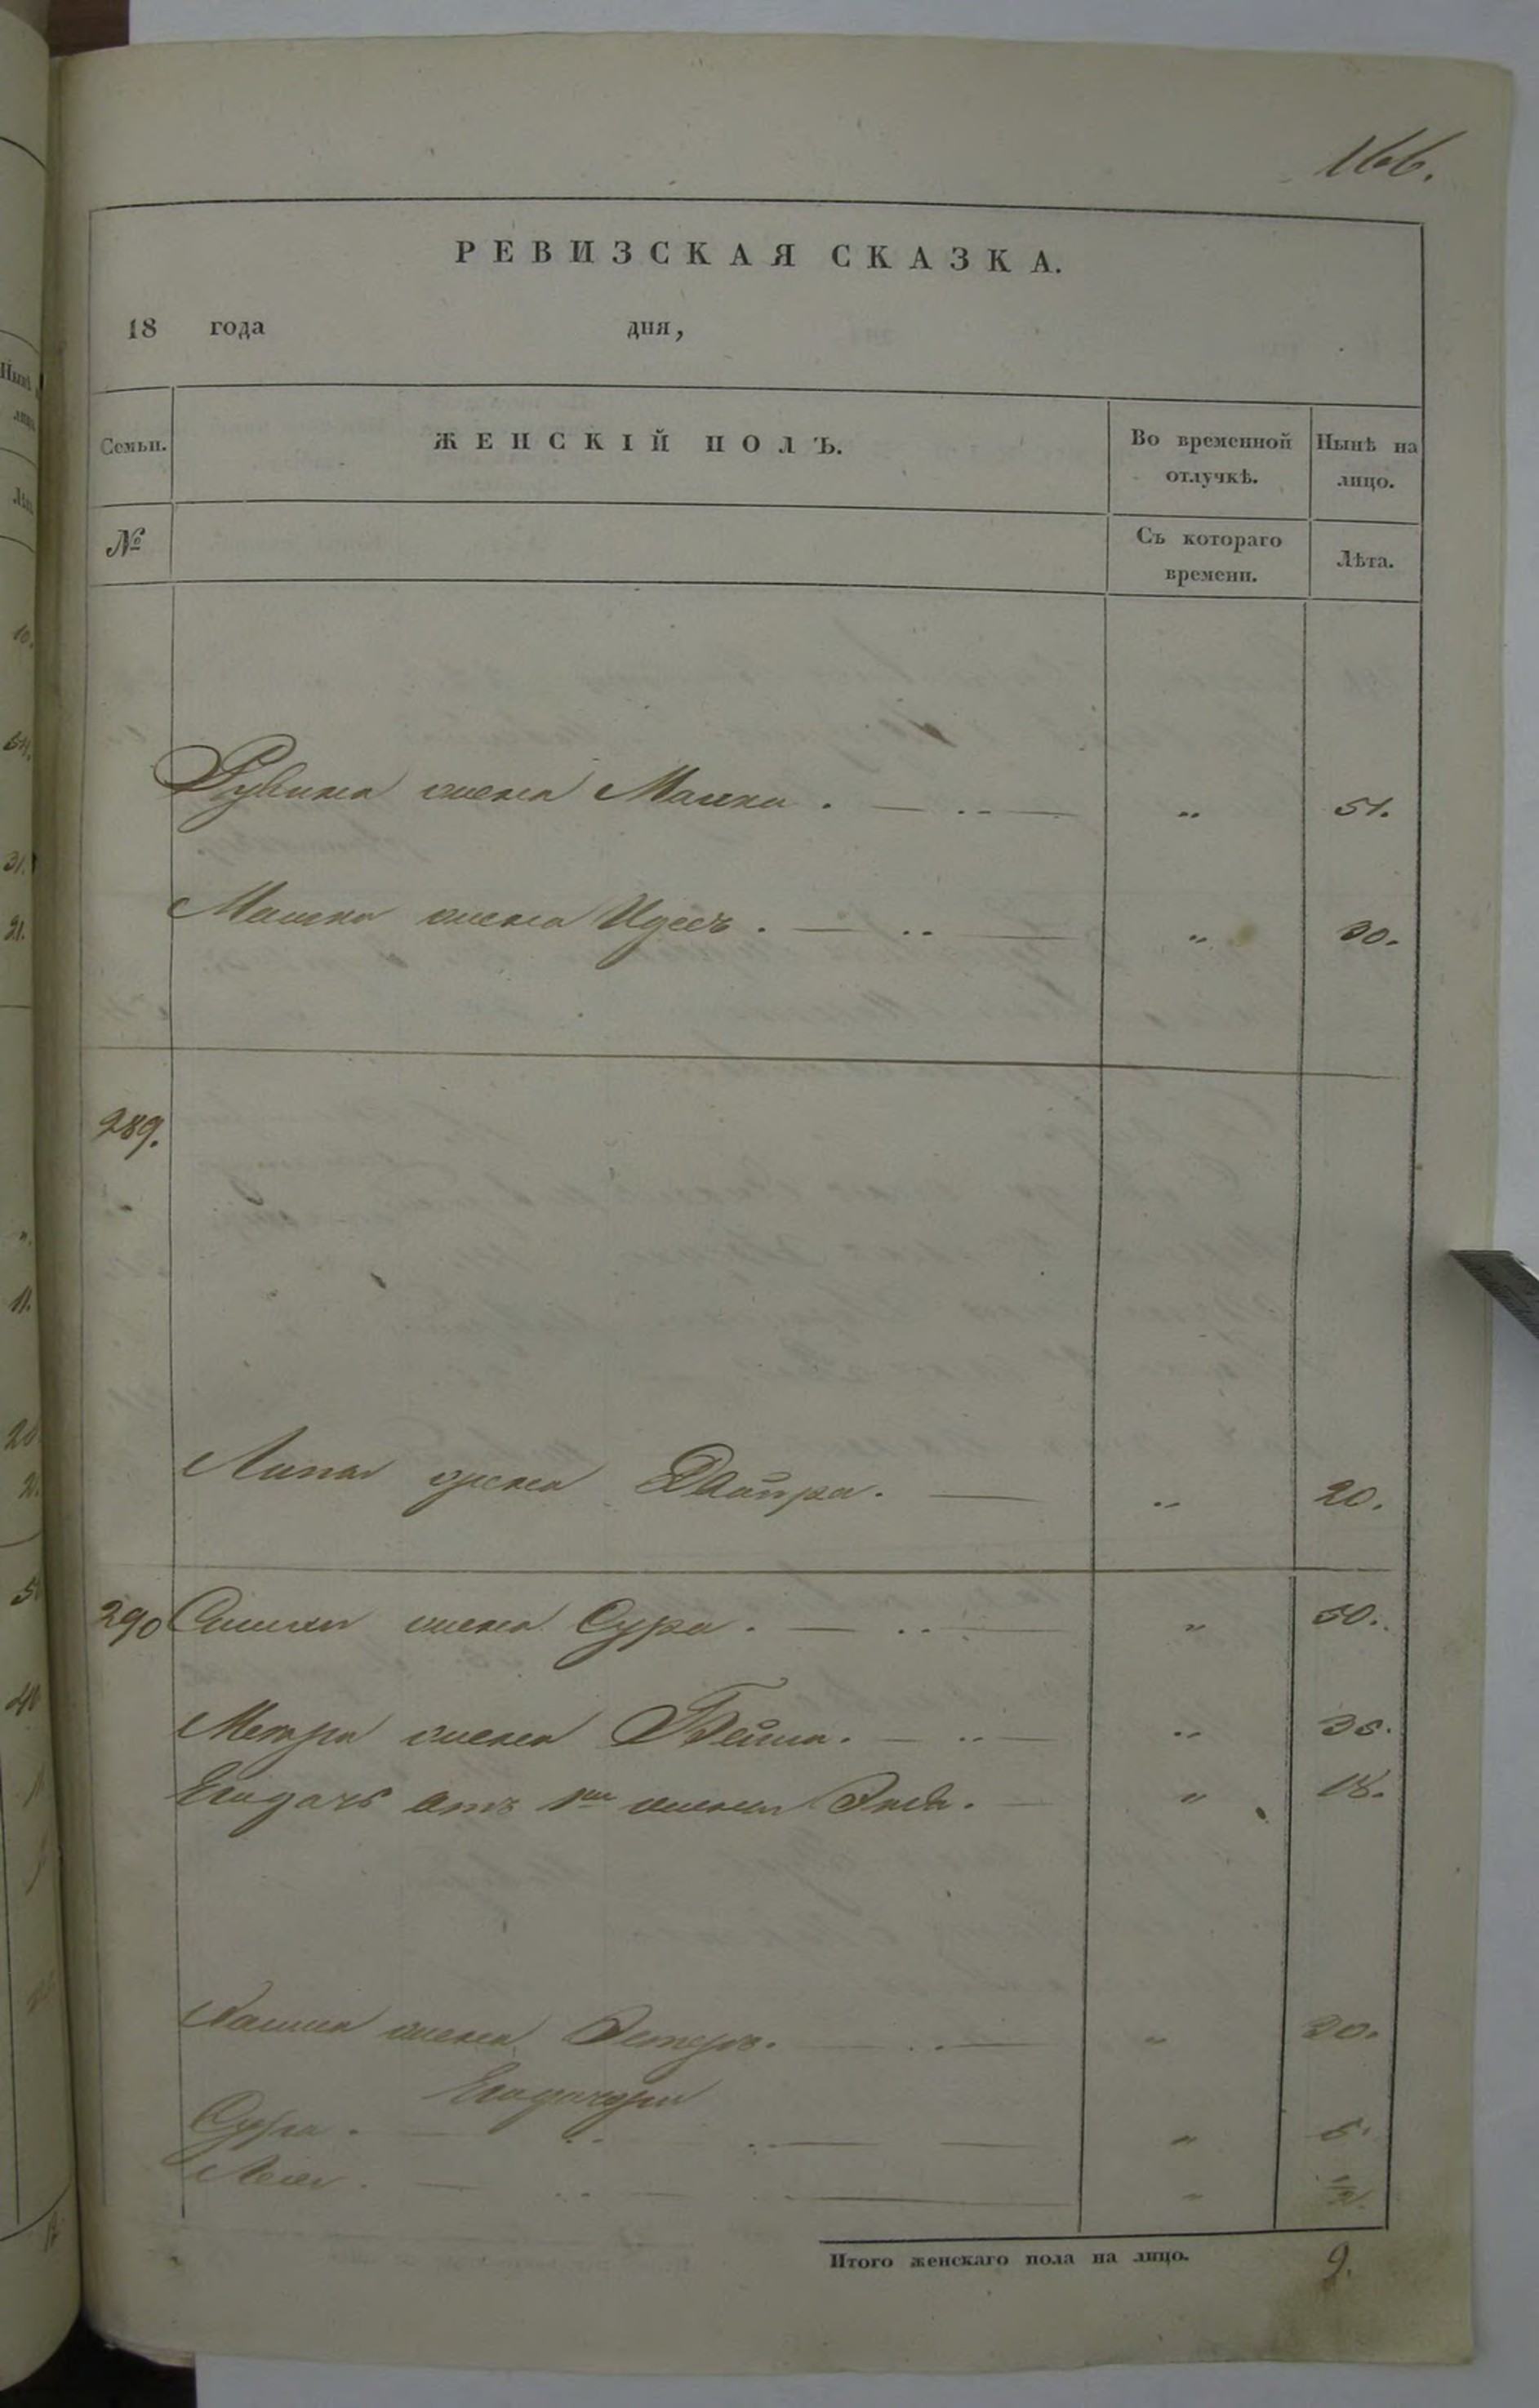 166.
РЕВИЗСКАЯ СКАЗКА.
18 года дня,
Семьи. ЖЕНСКІЙ ПОЛЪ. Во временной отлучкѣ. Нынѣ на лицо.
№ Съ котораго времени. Лѣта.
Рувина жена Малка. — .. — „ 51.
жена Идесъ. — .. — „ 30.
289.
жена Двойра. — „ 20.
290 жена Сура. — .. — „ 50.
жена Бейла. — .. — „
Егодочь отъ 1й жены — „ 18.
жена Эстеръ. — .. — „ 30.
Егодочери
Сура. — .. — .. — — „
Лея. — .. — .. — „ ½.
Итого женскаго пола на лицо. 9.